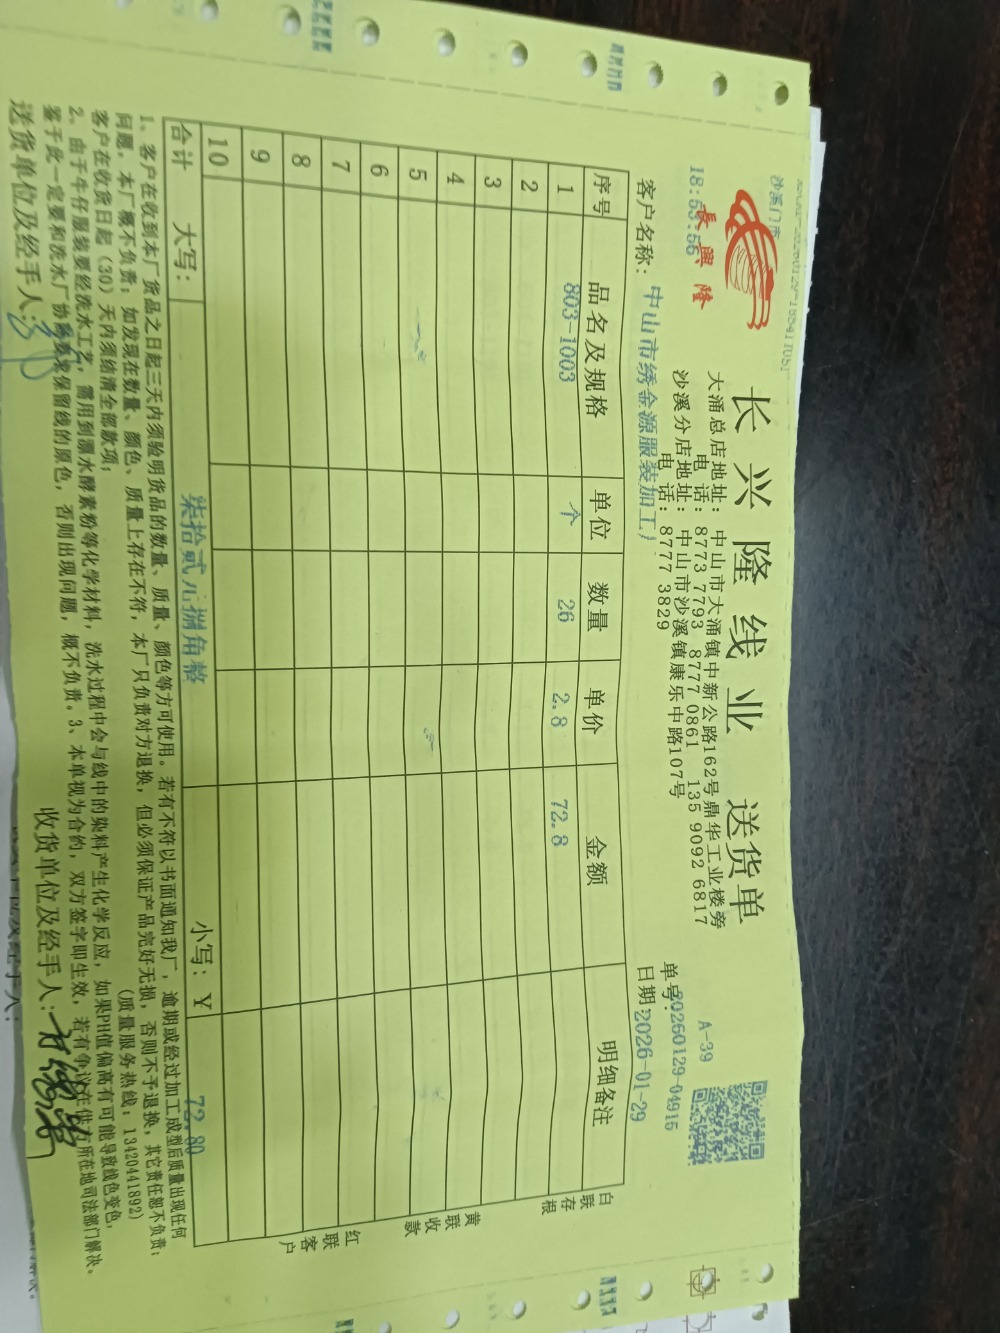 沙溪门市
18:53:56
長興隆
长兴隆线业 送货单
大涌总店地址：中山市大涌镇中新公路162号鼎华工业楼旁
电 话：8773 7793 8777 0861 135 9092 6817
沙溪分店地址：中山市沙溪镇康乐中路107号
电 话：8777 3829
A-39
单号：20260129-04915
客户名称：中山市绣金源服装加工厂
日期：2026-01-29
序号 品名及规格 单位 数量 单价 金额 明细备注
1 803-1003 个 26 2.8 72.8
2
3
4
5
6
7
8
9
10
合计 大写： 柒拾贰元捌角整 小写：￥ 72.80
白联存根
黄联收款
红联客户
1、客户在收到本厂货品之日起三天内须验明货品的数量、质量、颜色等方可使用。若有不符以书面通知我厂，逾期或经过加工成型后质量出现任何
问题，本厂概不负责；如发现在数量、颜色、质量上存在不符，本厂只负责对方退换，但必须保证产品完好无损，否则不予退换，其它责任恕不负责；
客户在收货日起（30）天内须结清全部款项； （质量服务热线：13420441892）
2、由于牛仔服装要经洗水工艺，需用到漂水酵素粉等化学材料，洗水过程中会与线中的染料产生化学反应，如果PH值偏高有可能导致线色变色，
鉴于此一定要和洗水厂协商要求保留线的原色，否则出现问题，概不负责。3、本单视为合约，双方签字即生效，若有争议在供方所在地司法部门解决。
送货单位及经手人：
收货单位及经手人：